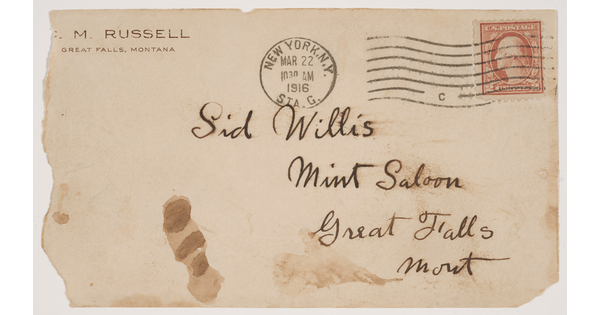 . M. RUSSELL
GREAT FALLS, MONTANA
NEW YORK, N.Y.
MAR 22
1030 AM
1916
STA. G.
C
U.S. POSTAGE
Sid Willis
Mint Saloon
Great Falls
Mont